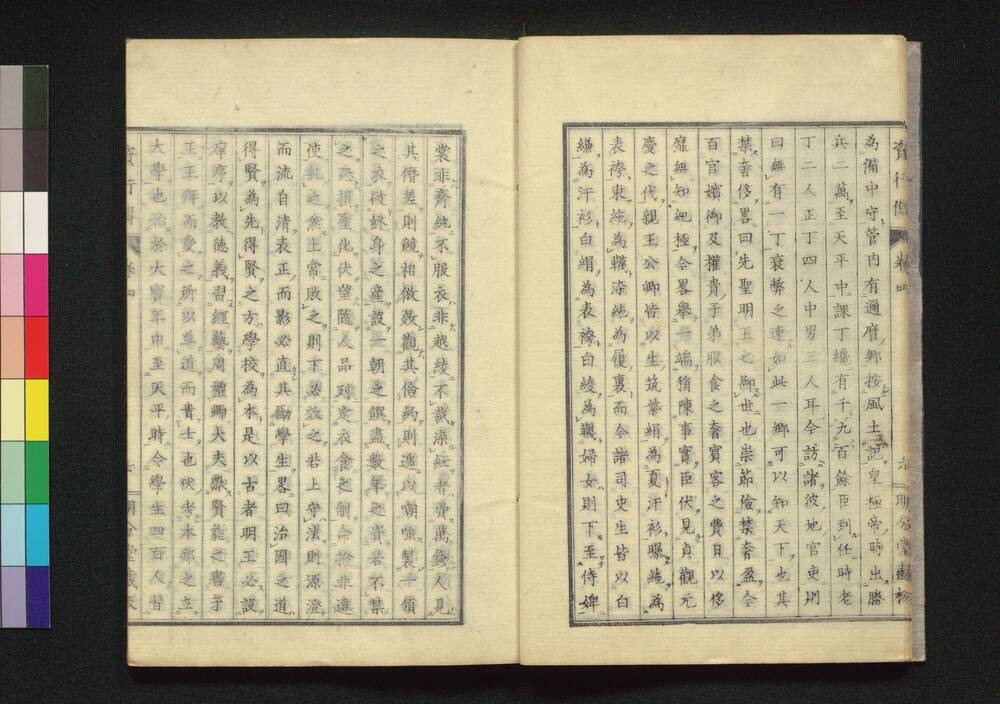 為備中守管内有邇磨郷按風土記皇極帝時出勝
兵二萬至天平中課丁纔有千九百餘臣到任時老
丁二人正丁四人中男三人耳今訪諸彼地官吏則
曰無有一丁衰弊之速如此一郷可以知天下也其
禁奢侈畧曰先聖明王之御世也崇節儉禁奢盈今
百官嬪御及權貴子弟服食之奢賓客之費日以侈
靡無知紀極今畧舉一端稍陳事實臣伏見貞觀元
慶之代親王公卿皆以生筑紫絹為夏汗衫曝絁為
表袴東絁為襪染絁為履裏而今諸司史生皆以白
縑為汗衫白絹為表袴白綾為襪婦女則下至侍婢
裳非齊紈不服衣非越綾不裁染紅者費萬錢人見
其儕差則競相倣效觀其儉約則遞以嘲嗤製千領
之衣於終身之産設一朝之饌盡數年之資若不禁
之恐損聖化伏望隨人品列定衣食之制命於非違
使糺之然上常敗之則下必效之若上守法則源澄
而流自清表正而影必直其勵學生畧曰治國之道
得賢為先得賢之方學校為本是以古者明王必設
庠序以教德義習經藝周禮卿大夫獻賢能之書于
王王拜而受之所以尊道而貴士也伏考本邦之立
大學也始於大寶年中至天平時令學生四百人習